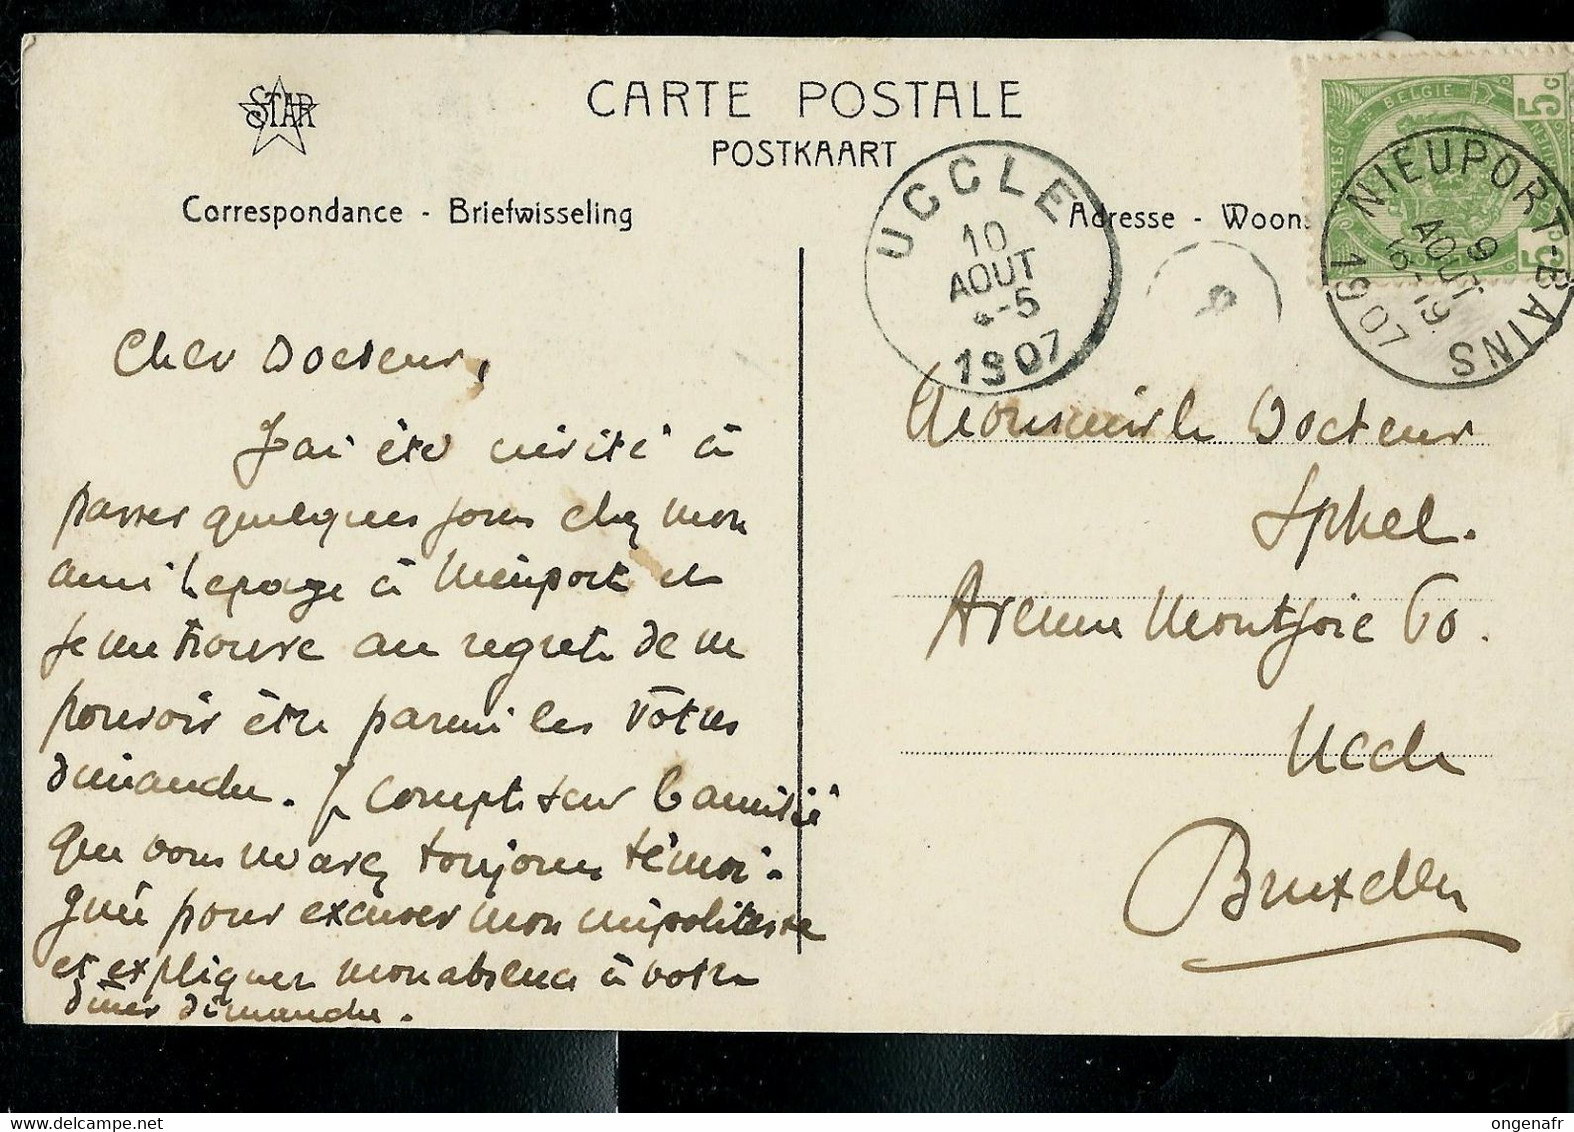 STAR
CARTE POSTALE
POSTKAART
Correspondance - Briefwisseling
Adresse - Woons
UCCLE
10
AOUT
-5
1907
BELGIE
5c
5
NIEUPORT-BAINS
9
AOUT
1907
Cher Docteur,
J'ai été invité à
passer quelques jours chez mon
ami Lepage à Nieuport et
je me trouve au regret de ne
pouvoir être parmi les vôtres
dimanche. Je compte sur l'amitié
que vous m'avez toujours témoi-
gnée pour excuser mon impolitesse
et expliquer mon absence à votre
diner dimanche.
Monsieur le Docteur
Iphel.
Avenue Montjoie 60.
Uccle
Bruxelles
www.delcampe.net
ongenafr